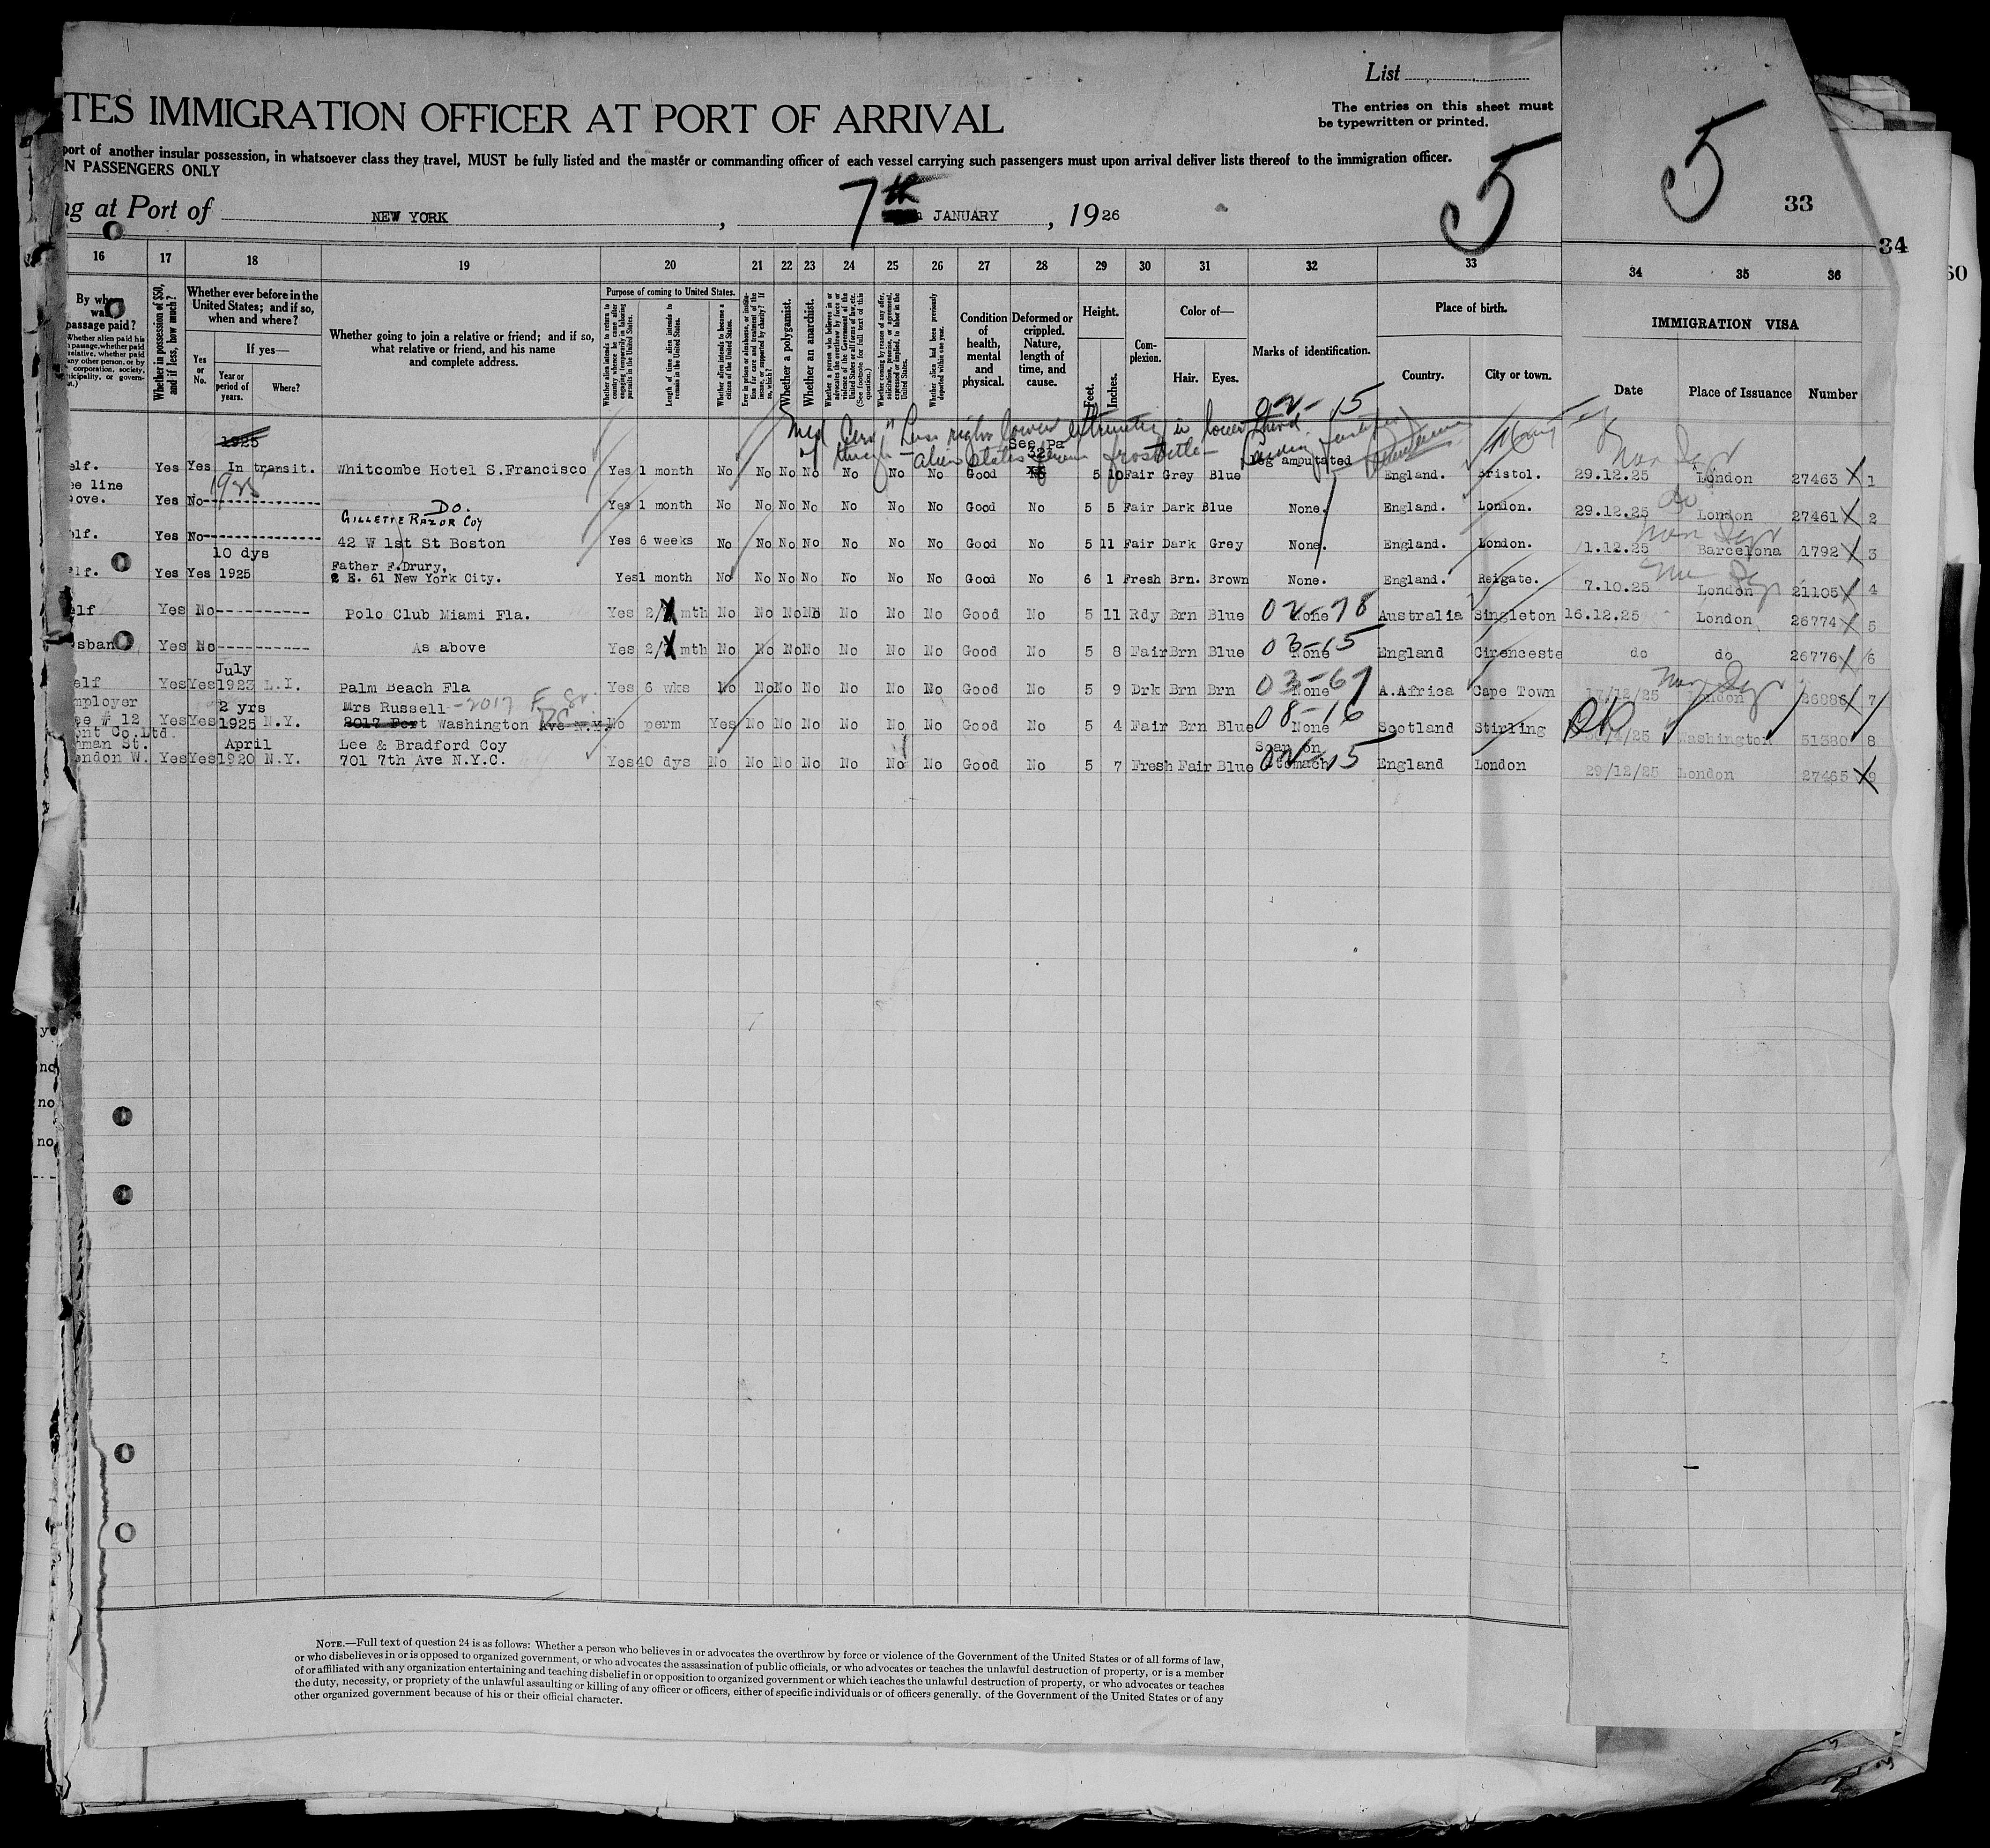 List
TES IMMIGRATION OFFICER AT PORT OF ARRIVAL
The entries on this sheet must
be typewritten or printed.
port of another insular possession, in whatsoever class they travel, MUST be fully listed and the master or commanding officer of each vessel carrying such passengers must upon arrival deliver lists thereof to the immigration officer.
N PASSENGERS ONLY
5 5 33
ng at Port of NEW YORK, 7th JANUARY, 1926
34
60
16 17 18 19 20 21 22 23 24 25 26 27 28 29 30 31 32 33 34 35 36
By whom was passage paid?
Whether in possession of $50, and if less, how much?
Whether ever before in the United States; and if so, when and where?
Yes or No.
If yes—
Year or period of years.
Where?
Whether going to join a relative or friend; and if so, what relative or friend, and his name and complete address.
Purpose of coming to United States.
Whether alien intends to return to country whence he came after engaging temporarily in laboring pursuits in the United States.
Length of time alien intends to remain in the United States.
Whether alien intends to become a citizen of the United States.
Ever in prison or almshouse, or institution for care and treatment of the insane, or supported by charity? If so, which?
Whether a polygamist.
Whether an anarchist.
Whether a person who believes in or advocates the overthrow by force or violence of the Government of the United States or all forms of law, etc. (See footnote for full text of this question.)
Whether coming by reason of any offer, solicitation, promise, or agreement, expressed or implied, to labor in the United States.
Whether alien had been previously deported within one year.
Condition of health, mental and physical.
Deformed or crippled. Nature, length of time, and cause.
Height.
Feet.
Inches.
Complexion.
Color of—
Hair.
Eyes.
Marks of identification.
Place of birth.
Country.
City or town.
IMMIGRATION VISA
Date
Place of Issuance
Number
02-15
Med Cert, "Loss right lower extremity in lower third
1925
of thigh - alien states from frostbite -
See Pa
32
elf. Yes Yes In transit. Whitcombe Hotel S.Francisco Yes 1 month No No No No No No No Good No 5 10 Fair Grey Blue leg amputated England. Bristol. 29.12.25 London 27463 X 1
ee line
bove. Yes No----------- Do. Yes 1 month No No No No No No No Good No 5 5 Fair Dark Blue None. England. London. 29.12.25 London 27461 X 2
GILLETTE RAZOR COY
elf. Yes No----------- 42 W 1st St Boston Yes 6 weeks No No No No No No No Good No 5 11 Fair Dark Grey None. England. London. 1.12.25 Barcelona 1792 X 3
10 dys
Father F.Drury,
elf. Yes Yes 1925 2 E. 61 New York City. Yes 1 month No No No No No No No Good No 6 1 Fresh Brn. Brown None. England. Reigate. 7.10.25 London 21105 X 4
elf Yes No---------- Polo Club Miami Fla. Yes 2/ mth No No No No No No No Good No 5 11 Rdy Brn Blue None 02-78 Australia Singleton 16.12.25 London 26774 X 5
usband Yes No---------- As above Yes 2/ mth No No No No No No No Good No 5 8 Fair Brn Blue None 03-15 England Cirenceste do do 26776 X 6
July
elf Yes Yes 1923 L.I. Palm Beach Fla Yes 6 wks No No No No No No No Good No 5 9 Drk Brn Brn None 03-67 A.Africa Cape Town 17/12/25 London 26886 7
mployer 2 yrs Mrs Russell -2017 F St.
ee # 12 Yes Yes 1925 N.Y. 2017 Port Washington Ave N.Y. No perm Yes No No No No No No Good No 5 4 Fair Brn Blue None 08-16 Scotland Stirling Washington 51380 8
ont Co.Ltd.
hman St. April Lee & Bradford Coy Scar on
ondon W. Yes Yes 1920 N.Y. 701 7th Ave N.Y.C. Yes 40 dys No No No No No No No Good No 5 7 Fresh Fair Blue Stomach 02-15 England London 29/12/25 London 27465 X 9
no
no
no
NOTE.—Full text of question 24 is as follows: Whether a person who believes in or advocates the overthrow by force or violence of the Government of the United States or of all forms of law,
or who disbelieves in or is opposed to organized government, or who advocates the assassination of public officials, or who advocates or teaches the unlawful destruction of property, or is a member
of or affiliated with any organization entertaining and teaching disbelief in or opposition to organized government or which teaches the unlawful destruction of property, or who advocates or teaches
the duty, necessity, or propriety of the unlawful assaulting or killing of any officer or officers, either of specific individuals or of officers generally. of the Government of the United States or of any
other organized government because of his or their official character.